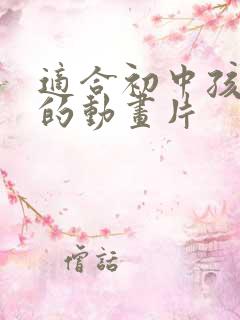 適合初中孩
的動畫片
僧話